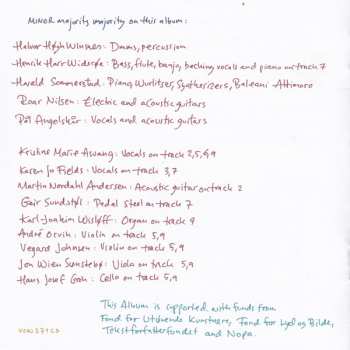 MINOR majority majority on this album:
Halvor Høgh Winsnes: Drums, percussion
Henrik Harr Widerøe: Bass, flute, banjo, backing vocals and piano on track 7
Harald Sommerstad: Piano, Wurlitzer, Synthesizers,
Roar Nilsen: Electric and acoustic guitars
Pål Angelskår: Vocals and acoustic guitars
Kristine Marie Aswang: Vocals on track 2,5,6,9
Karen Jo Fields: Vocals on track 3,7
Martin Nordahl Andersen: Acoustic guitar on track 2
Geir Sundstøl: Pedal steel on track 7
Karl-Joakim Wisløff: Organ on track 9
André Orvik: Violin on track 5,9
Vegard Johnsen: Violin on track 5,9
Jon Wien Sønstebø: Viola on track 5,9
Hans Josef Groh: Cello on track 5,9
This Album is supported with funds from
Fond for Utøvende Kunstnere, Fond for Lyd og Bilde,
Tekstforfatterfondet and Nopa.
VOW 279 CD